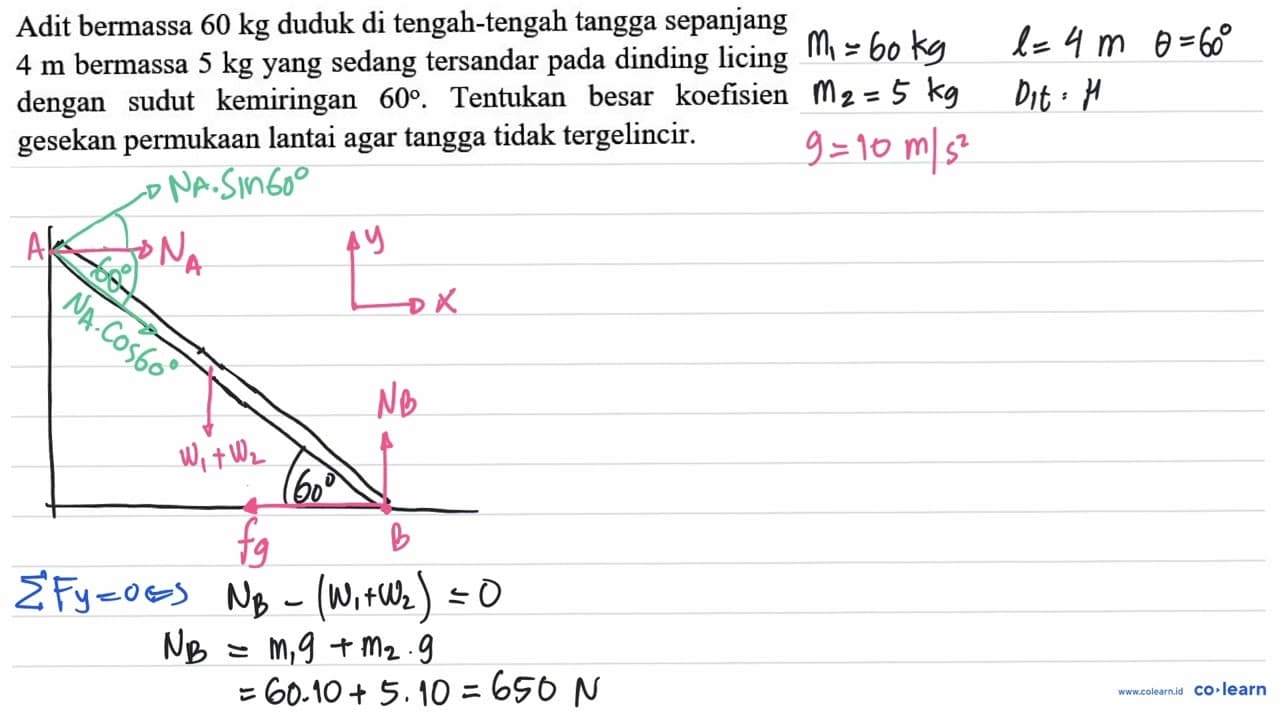 Adit bermassa 60 kg duduk di tengah-tengah tangga sepanjang
4 m bermassa 5 kg yang sedang tersandar pada dinding licing
dengan sudut kemiringan 60°. Tentukan besar koefisien
gesekan permukaan lantai agar tangga tidak tergelincir.
m₁ = 60 kg l = 4 m θ = 60°
m₂ = 5 kg Dit : μ
g = 10 m/s²
NA. Sin60°
A NA
60°
NA. Cos60°
y
x
NB
W₁ + W₂
60°
fg B
ΣFy = 0 ⇔ NB - (W₁ + W₂) = 0
NB = m₁g + m₂.g
= 60.10 + 5.10 = 650 N
www.colearn.id co·learn